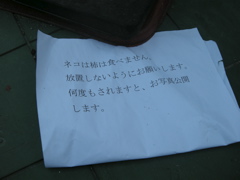 ネコは柿は食べません。
放置しないようにお願いします。
何度もされますと、お写真公開
します。